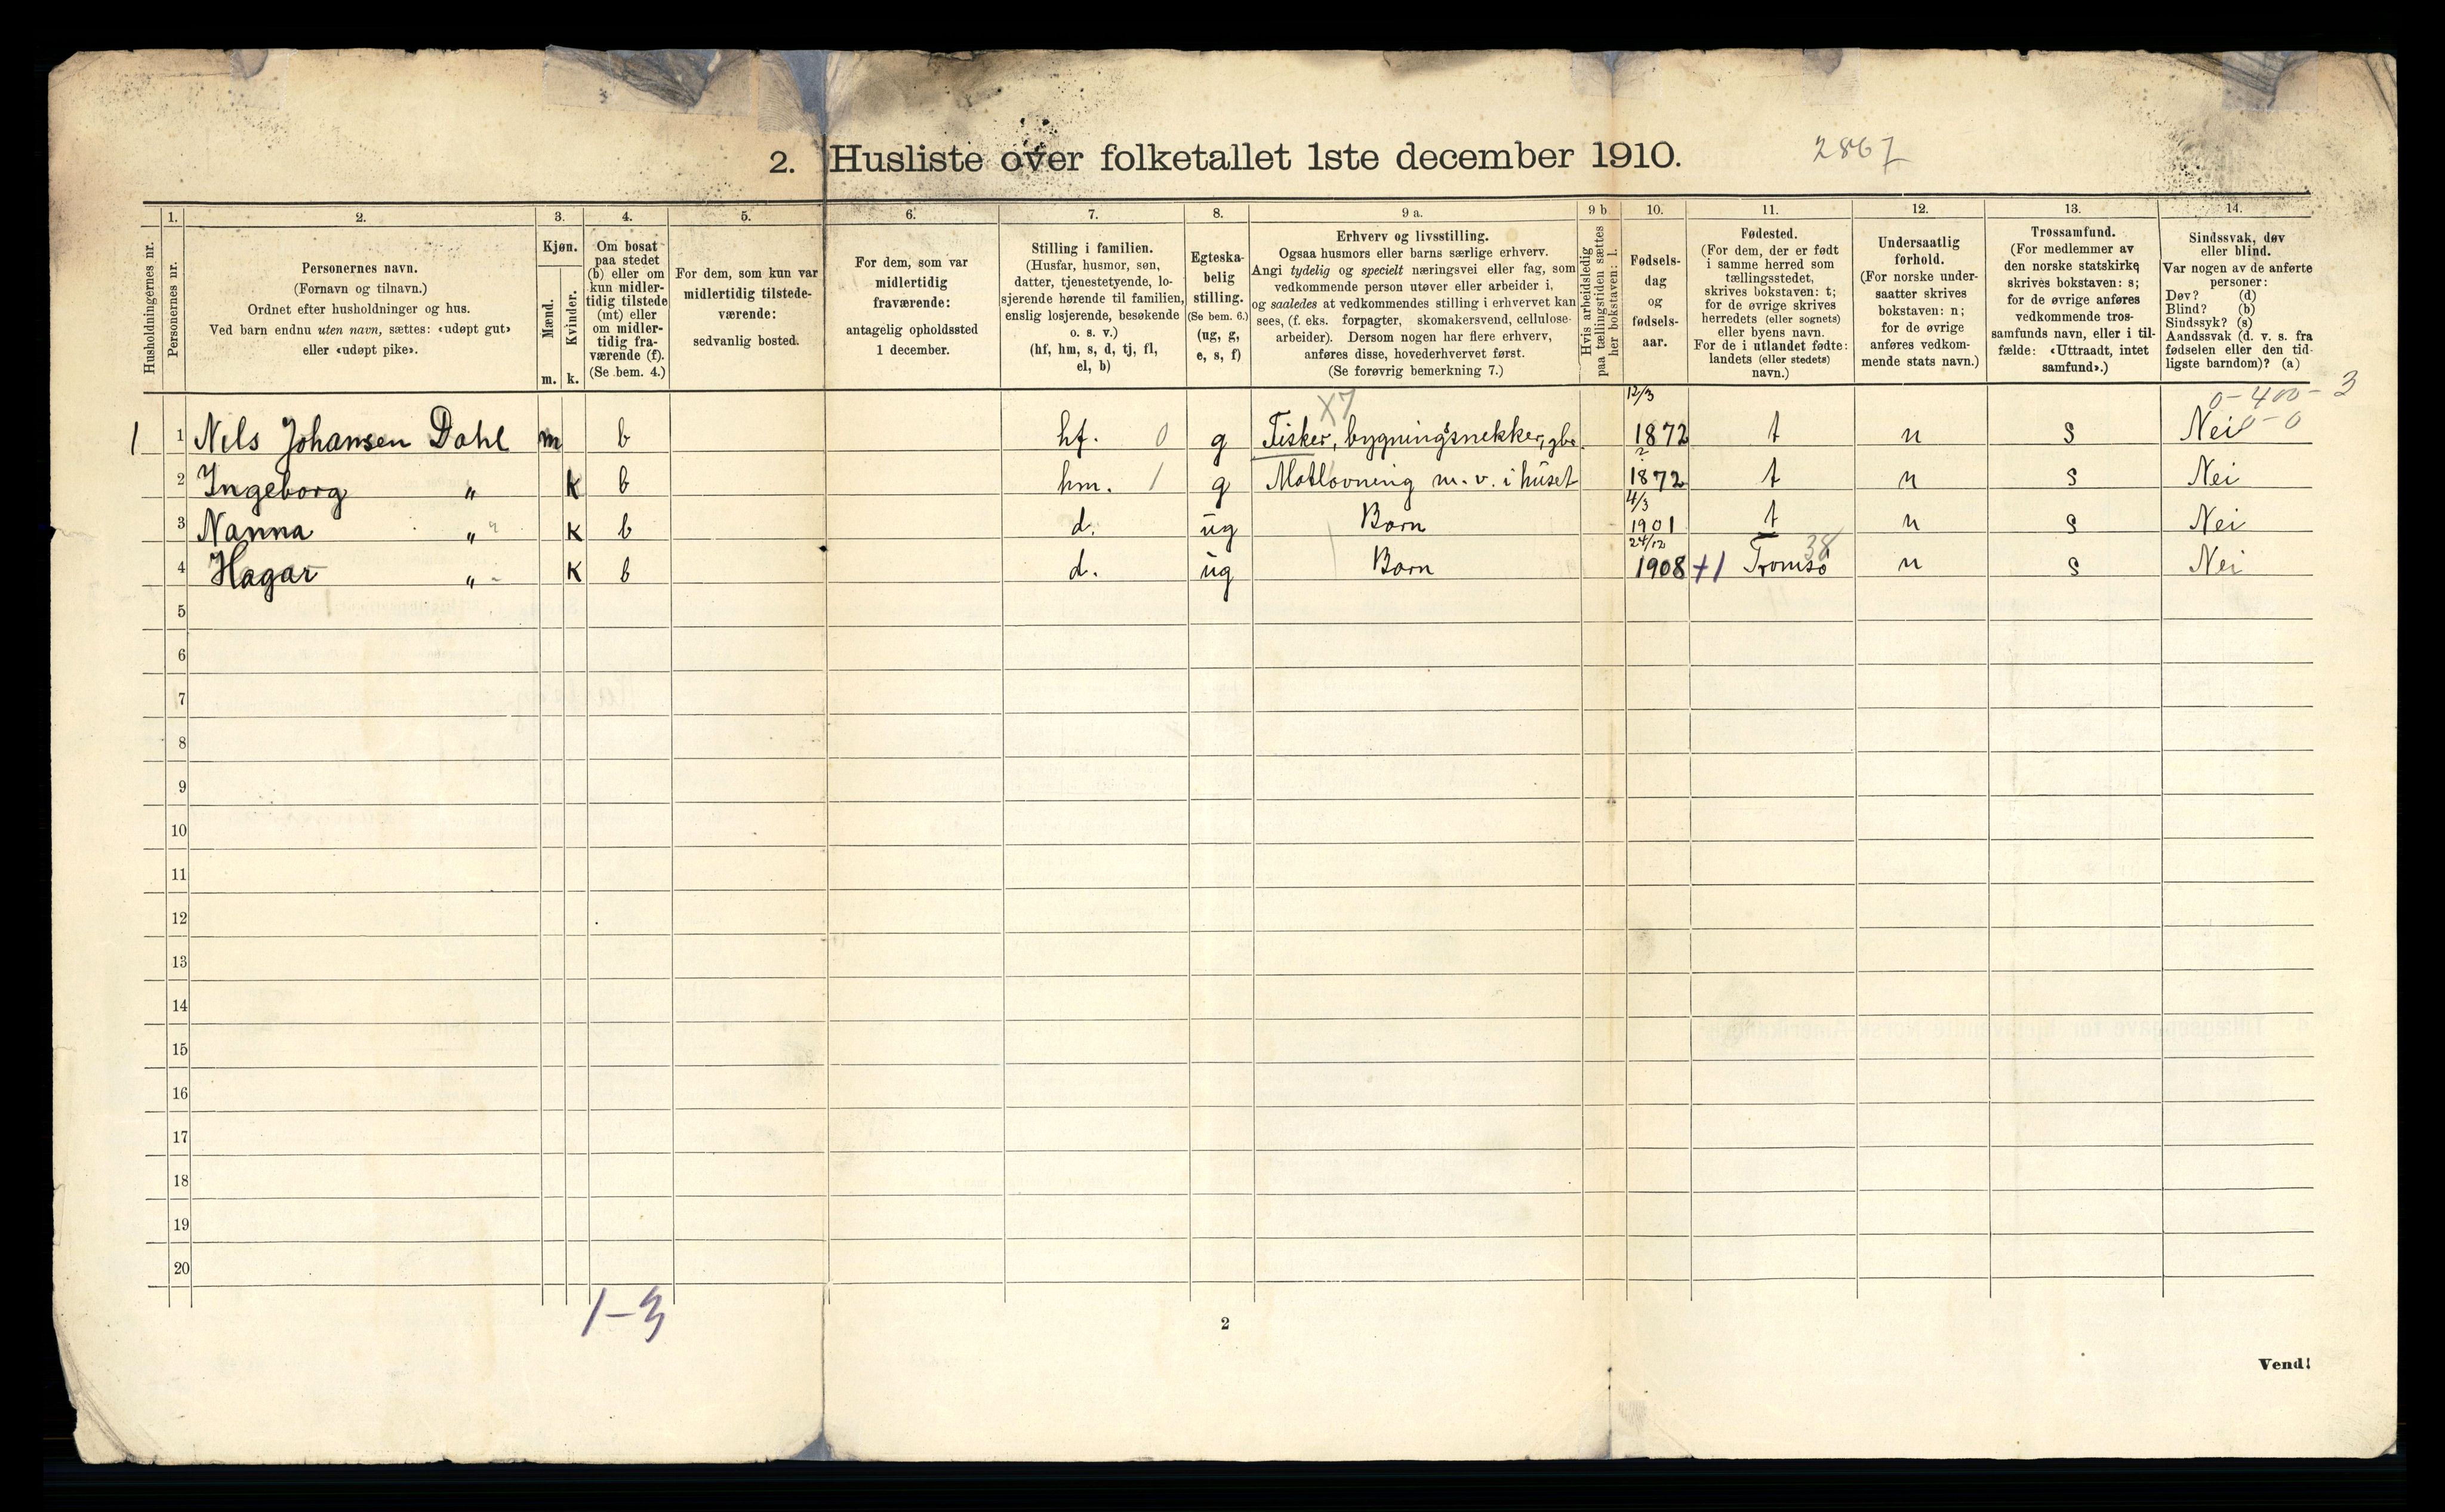 2. Husliste over folketallet 1ste december 1910. 2867
Husholdningernes nr.
1. Personernes nr.
2. Personernes navn.
(Fornavn og tilnavn.)
Ordnet efter husholdninger og hus.
Ved barn endnu uten navn, sættes: «udøpt gut»
eller «udøpt pike».
3. Kjøn.
Mænd. m.
Kvinder. k.
4. Om bosat
paa stedet
(b) eller om
kun midler-
tidig tilstede
(mt) eller
om midler-
tidig fra-
værende (f).
(Se bem. 4.)
5. For dem, som kun var
midlertidig tilstede-
værende:
sedvanlig bosted.
6. For dem, som var
midlertidig
fraværende:
antagelig opholdssted
1 december.
7. Stilling i familien.
(Husfar, husmor, søn,
datter, tjenestetyende, lo-
sjerende hørende til familien,
enslig losjerende, besøkende
o. s. v.)
(hf, hm, s, d, tj, fl,
el, b)
8. Egteska-
belig
stilling.
(Se bem. 6.)
(ug, g,
e, s, f)
9 a. Erhverv og livsstilling.
Ogsaa husmors eller barns særlige erhverv.
Angi tydelig og specielt næringsvei eller fag, som
vedkommende person utøver eller arbeider i,
og saaledes at vedkommendes stilling i erhvervet kan
sees, (f. eks. forpagter, skomakersvend, cellulose-
arbeider). Dersom nogen har flere erhverv,
anføres disse, hovederhvervet først.
(Se forøvrig bemerkning 7.)
9 b Hvis arbeidsledig
paa tællingstiden sættes
her bokstaven: l.
10. Fødsels-
dag
og
fødsels-
aar.
11. Fødested.
(For dem, der er født
i samme herred som
tællingsstedet,
skrives bokstaven: t;
for de øvrige skrives
herredets (eller sognets)
eller byens navn.
For de i utlandet fødte:
landets (eller stedets)
navn.)
12. Undersaatlig
forhold.
(For norske under-
saatter skrives
bokstaven: n;
for de øvrige
anføres vedkom-
mende stats navn.)
13. Trossamfund.
(For medlemmer av
den norske statskirke
skrives bokstaven: s;
for de øvrige anføres
vedkommende tros-
samfunds navn, eller i til-
fælde: «Uttraadt, intet
samfund».)
14. Sindssvak, døv
eller blind.
Var nogen av de anførte
personer:
Døv? (d)
Blind? (b)
Sindssyk? (s)
Aandssvak (d. v. s. fra
fødselen eller den tid-
ligste barndom)? (a)
X7 12/3 0-400-3
1 1 Nils Johansen Dahl m b hf. 0 g Fisker, bygningssnekker, gbr 1872 t n s Nei 0-0
2 Ingeborg " k b hm. 1 g Matlovning m. v. i huset 1872 t n s Nei
4/3
3 Nanna " k b d. ug Barn 1901 t n s Nei
24/12 38
4 Hagar " k b d. ug Barn 1908 +1 Tromsø n s Nei
5
6
7
8
9
10
11
12
13
14
15
16
17
18
19
20
1-3
2
Vend!